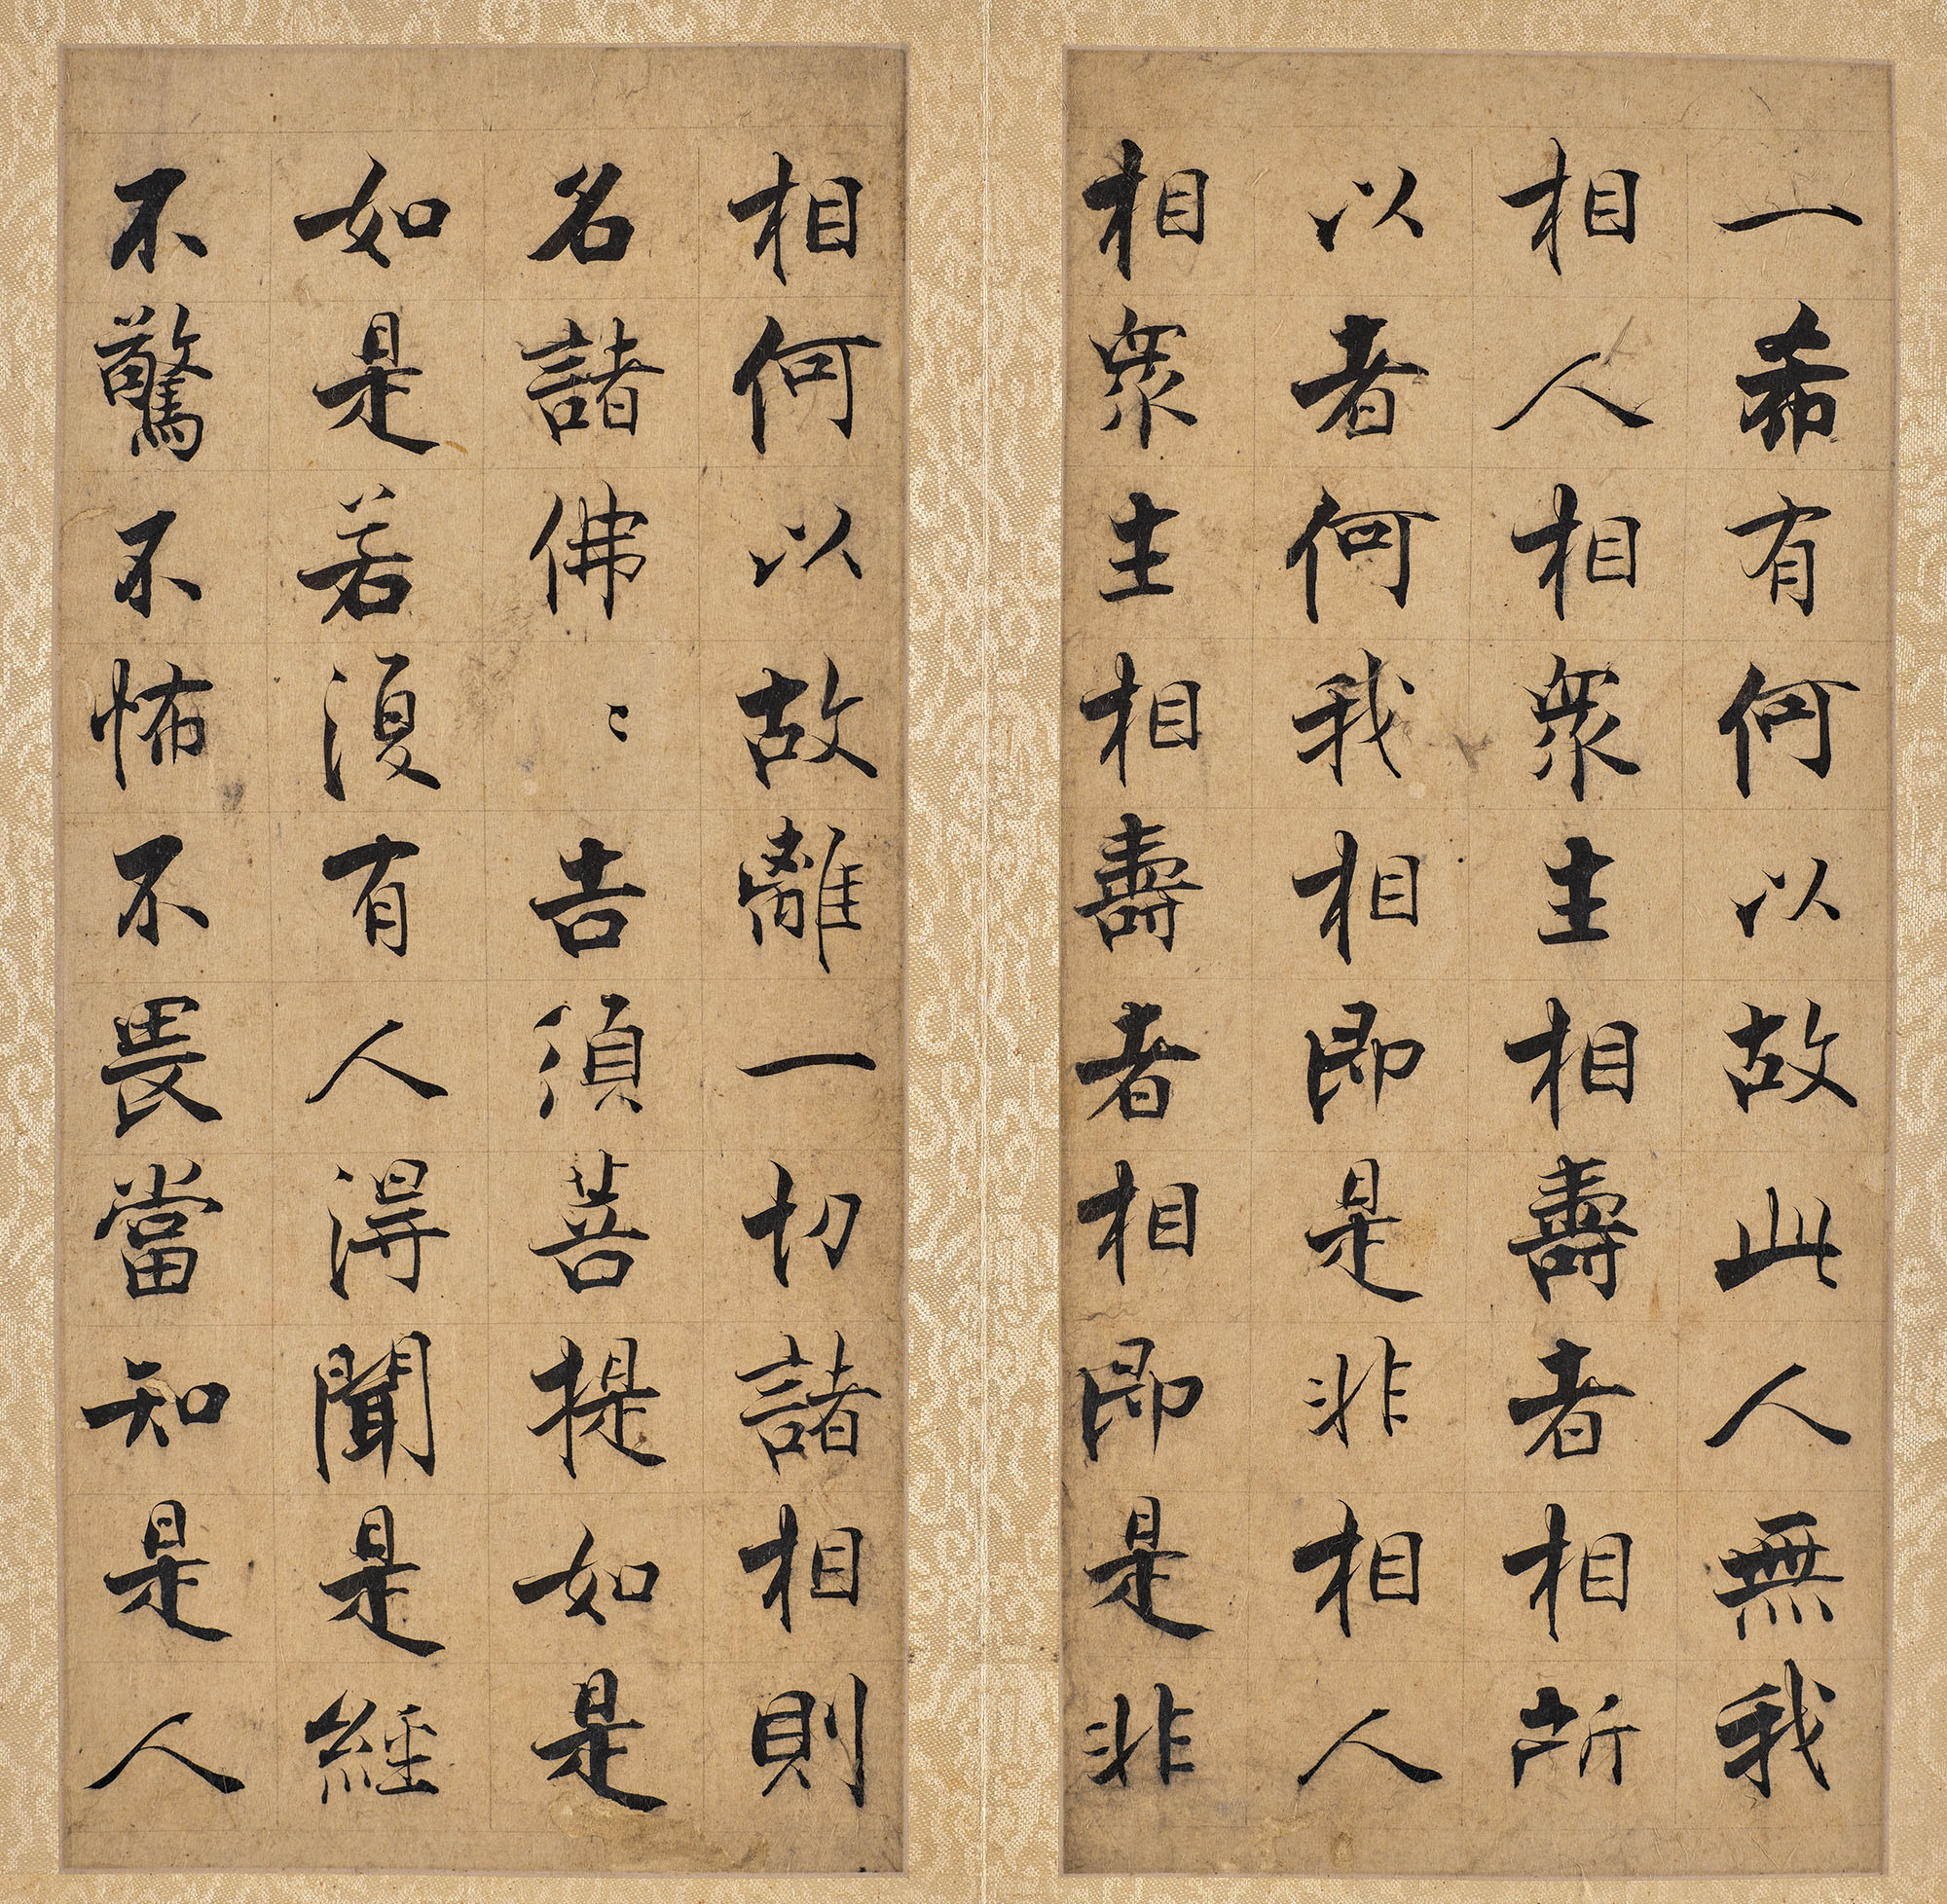 一希有何以故此人無我
相人相衆生相壽者相所
以者何我相即是非相人
相衆生相壽者相即是非
相何以故離一切諸相則
名諸佛〻告須菩提如是
如是若復有人得聞是經
不驚不怖不畏當知是人